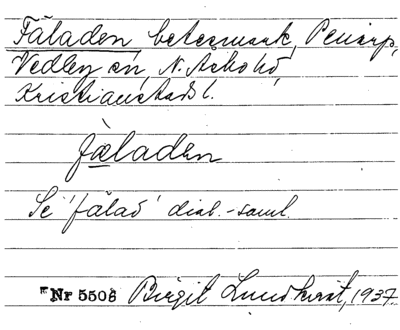 Fäladen betesmark, Penarp,
Vedby sn, N. Åsbo hd,
Kristianstads l.
fæladen
Se 'fälad' dial.-saml.
Nr 5508 Birgit Lundkvist, 1937.